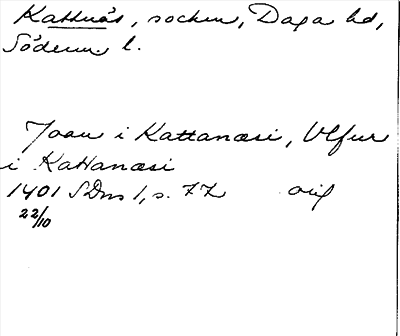 Kattnäs, socken, Daga hd,
Söderm. l.
Joan i Kattanæsi, Vlfuer
i Kattanæsi
1401 SDns 1, s. 77 orig
22/10